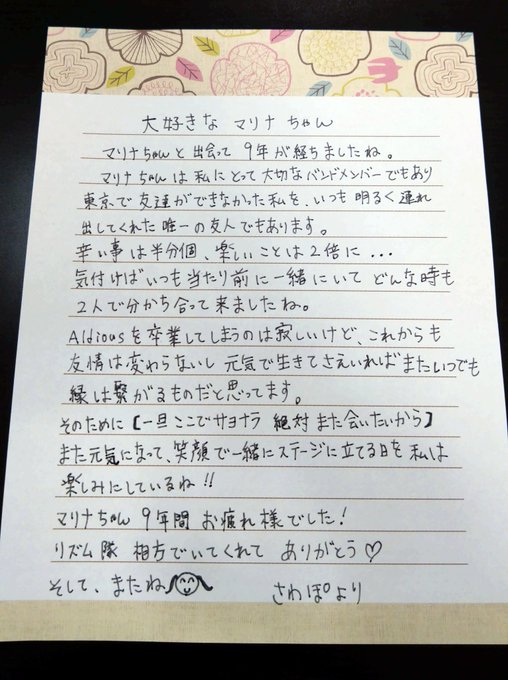 大好きな マリナ ちゃん
マリナちゃんと 出会って 9年 が経ちましたね。
マリナちゃん は 私に とって 大切な バンドメンバー でもあり
東京で 友達が できなかった 私を、いつも 明るく 連れ
出してくれた 唯一の 友人 でもあります。
辛い事は 半分個、楽しいことは 2倍に ・・・
気付けば いつも 当たり前に 一緒に いて どんな時も
2人で 分かち合って 来ましたね。
Aldiousを 卒業してしまうのは 寂しいけど、これからも
友情は 変わらないし 元気で 生きてさえいれば またいつでも
縁は 繋がる ものだと 思ってます。
そのために [一旦 ここで サヨナラ 絶対 また 会いたいから]
また 元気に なって、笑顔で 一緒に ステージに 立てる日を 私は
楽しみに しているね!!
マリナちゃん 9年間 お疲れ様でした!
リズム隊 相方で いてくれて ありがとう♡
そして、またね
さわぽより